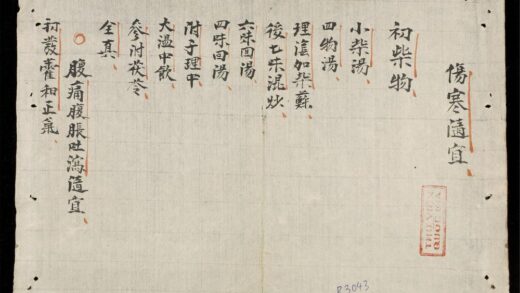 傷寒隨宜
初柴物
小柴湯
四物湯
理陰加柴蘇
後七味混炒
六味回湯
四味回湯
附子理中
大溫中飲
參附茯苓
全真
腹痛腹脹吐瀉隨宜
初發藿和正氣
R3043